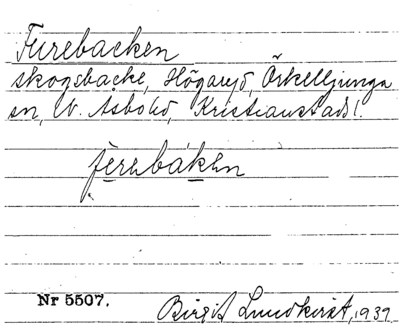 Furebacken
skogsbacke, Högaryd, Örkelljunga
sn, V. Åsbo hd, Kristianstads l.
fùrebáken
Nr 5507.
Birgit Lundkvist, 1939